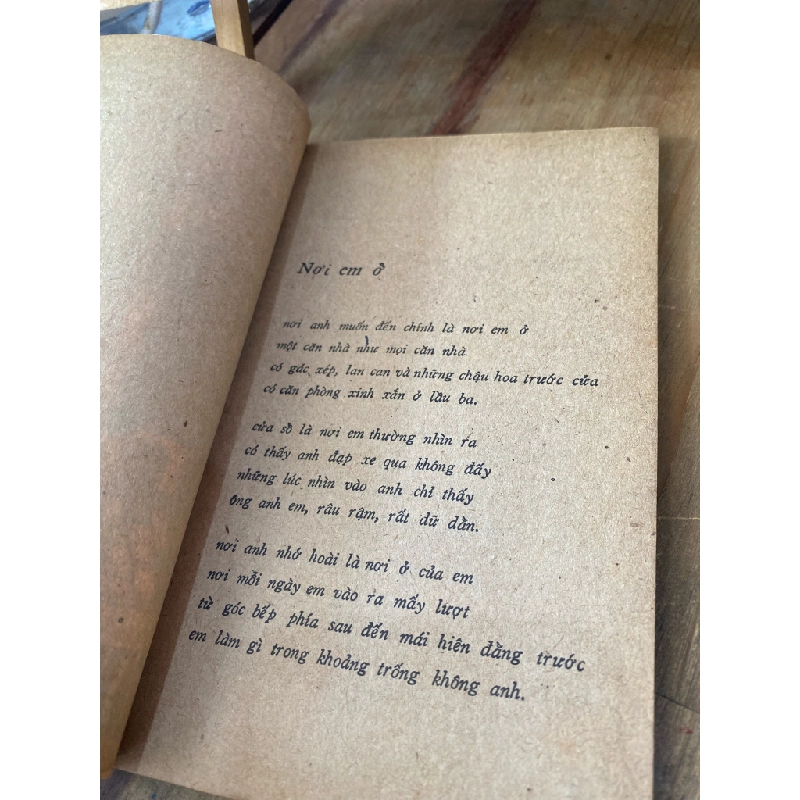 Nơi em ở
nơi anh muốn đến chính là nơi em ở
một căn nhà như mọi căn nhà
có gác xép, lan can và những chậu hoa trước cửa
có căn phòng xinh xắn ở lầu ba.
cửa sổ là nơi em thường nhìn ra
có thấy anh đạp xe qua không đấy
những lúc nhìn vào anh chỉ thấy
ông anh em, râu rậm, rất dữ dằn.
nơi anh nhớ hoài là nơi ở của em
nơi mỗi ngày em vào ra mấy lượt
từ góc bếp phía sau đến mái hiên đằng trước
em làm gì trong khoảng trống không anh.